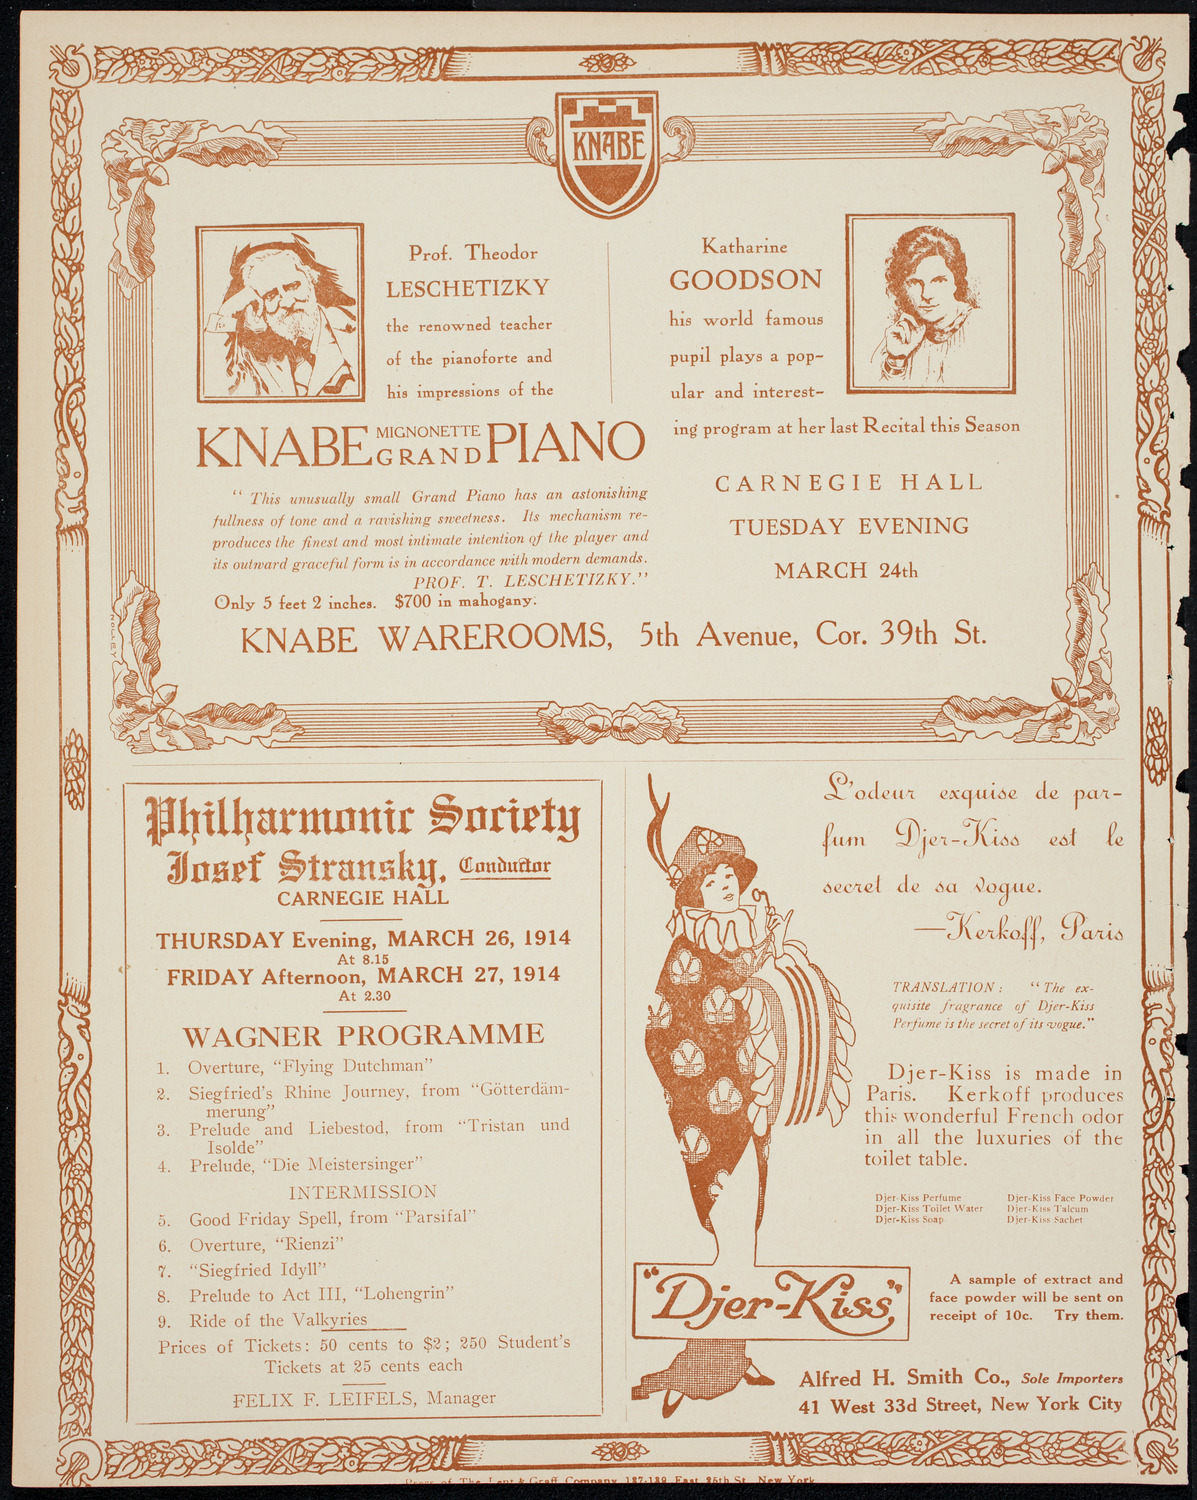 KNABE
Prof. Theodor
LESCHETIZKY
the renowned teacher
of the pianoforte and
his impressions of the
KNABE MIGNONETTE GRAND PIANO
“ This unusually small Grand Piano has an astonishing
fullness of tone and a ravishing sweetness. Its mechanism re-
produces the finest and most intimate intention of the player and
its outward graceful form is in accordance with modern demands.
PROF. T. LESCHETIZKY.”
Only 5 feet 2 inches. $700 in mahogany.
Katharine
GOODSON
his world famous
pupil plays a pop-
ular and interest-
ing program at her last Recital this Season
CARNEGIE HALL
TUESDAY EVENING
MARCH 24th
KNABE WAREROOMS, 5th Avenue, Cor. 39th St.
Philharmonic Society
Josef Stransky, Conductor
CARNEGIE HALL
THURSDAY Evening, MARCH 26, 1914
At 8.15
FRIDAY Afternoon, MARCH 27, 1914
At 2.30
WAGNER PROGRAMME
1. Overture, “Flying Dutchman”
2. Siegfried's Rhine Journey, from “Götterdäm-
merung”
3. Prelude and Liebestod, from “Tristan und
Isolde”
4. Prelude, “Die Meistersinger”
INTERMISSION
5. Good Friday Spell, from “Parsifal”
6. Overture, “Rienzi”
7. “Siegfried Idyll”
8. Prelude to Act III, “Lohengrin”
9. Ride of the Valkyries
Prices of Tickets: 50 cents to $2; 250 Student's
Tickets at 25 cents each
FELIX F. LEIFELS, Manager
L'odeur exquise de par-
fum Djer-Kiss est le
secret de sa vogue.
—Kerkoff, Paris
TRANSLATION: “The ex-
quisite fragrance of Djer-Kiss
Perfume is the secret of its vogue.”
Djer-Kiss is made in
Paris. Kerkoff produces
this wonderful French odor
in all the luxuries of the
toilet table.
Djer-Kiss Perfume Djer-Kiss Face Powder
Djer-Kiss Toilet Water Djer-Kiss Talcum
Djer-Kiss Soap Djer-Kiss Sachet
“Djer-Kiss”
A sample of extract and
face powder will be sent on
receipt of 10c. Try them.
Alfred H. Smith Co., Sole Importers
41 West 33d Street, New York City
Press of The Lent & Graff Company, 137-139 East 25th St. New York